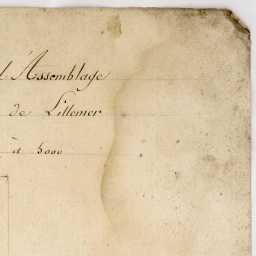 d'Assemblage
de Lillemer
à 5000